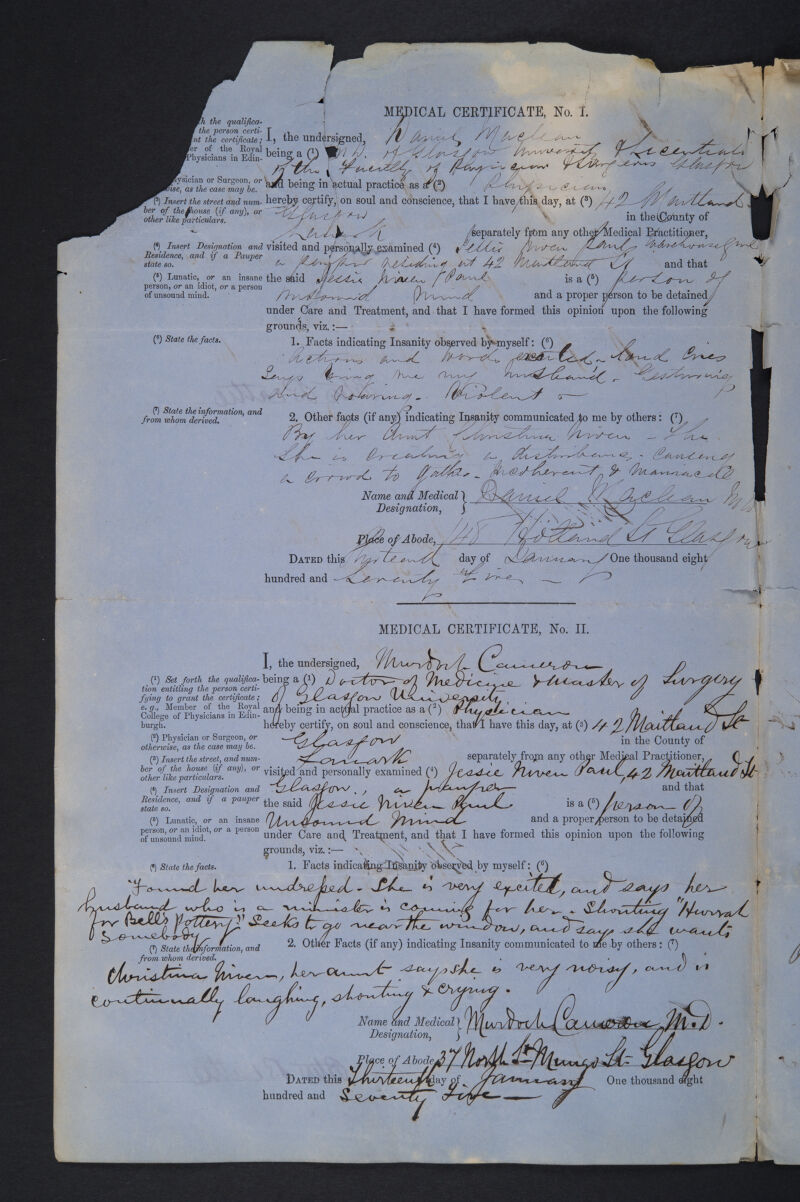 MEDICAL CERTIFICATE, No. I.
h the qualifica-
the person certi-
nt the certificate;
er of the Royal
Physicians in Edin-
ysician or Surgeon, or
wise, as the case may be.
(³) Insert the street and num-
ber of the house (if any), or
other like particulars.
(⁴) Insert Designation and
Residence, and if a Pauper
state so.
(⁵) Lunatic, or an insane
person, or an idiot, or a person
of unsound mind.
(⁶) State the facts.
(⁷) State the information, and
from whom derived.
I, the undersigned, Daniel Maclean
being a (¹) M.D. of Glasgow University & Licentiate
of the Faculty of Physicians & Surgeons Glasgow
and being in actual practice as a (²) Physician
hereby certify, on soul and conscience, that I have this day, at (³) 42 Maitland
Glasgow in the County of
Lanark separately from any other Medical Practitioner,
visited and personally examined (⁴) Jessie Niven Paul
a pauper residing at 42 Maitland St and that
the said Jessie Niven Paul is a (⁵) person of
unsound mind and a proper person to be detained
under Care and Treatment, and that I have formed this opinion upon the following
grounds, viz.:—
1. Facts indicating Insanity observed by myself: (⁶)
Actions and words excited - loud cries
Says bring me my husband - Gesturing
and roaring. Violent
2. Other facts (if any) indicating Insanity communicated to me by others: (⁷)
By her Aunt Christina Niven - that
She is creating a disturbance - causing
a crowd to gather - incoherent, & maniacal
Name and Medical Designation, Daniel Maclean M.D.
Place of Abode, 148 St Glasgow
DATED this day of January One thousand eight
hundred and Seventy Five
MEDICAL CERTIFICATE, No. II.
(¹) Set forth the qualifica-
tion entitling the person certi-
fying to grant the certificate;
e.g., Member of the Royal
College of Physicians in Edin-
burgh.
(²) Physician or Surgeon, or
otherwise, as the case may be.
(³) Insert the street, and num-
ber of the house (if any), or
other like particulars.
(⁴) Insert Designation and
Residence, and if a pauper
state so.
(⁵) Lunatic, or an insane
person, or an idiot, or a person
of unsound mind.
(⁶) State the facts.
I, the undersigned, Murdoch Cameron
being a (¹) Doctor of Medicine & Master of Surgery
of Glasgow University
and being in actual practice as a (²) Physician
hereby certify, on soul and conscience, that I have this day, at (³) 42 Maitland St
Glasgow in the County of
Lanark separately from any other Medical Practitioner,
visited and personally examined (⁴) Jessie Niven Paul, 42 Maitland St
Glasgow, a pauper and that
the said Jessie Niven Paul is a (⁵) person of
Unsound mind and a proper person to be detained
under Care and Treatment, and that I have formed this opinion upon the following
grounds, viz.:—
1. Facts indicating Insanity observed by myself: (⁶)
Found her undressed - She is very excited, and says her
husband who is a minister is coming for her - Shouting "Hurrah
for Bell's Pottery." Seeks to go near the window, and say she wants
Somebody.
(⁷) State the information, and
from whom derived.
2. Other Facts (if any) indicating Insanity communicated to me by others: (⁷)
Christina Niven, her aunt says she is very noisy, and is
continually laughing, shouting & crying.
Name and Medical Designation, Murdoch Cameron M.D.
Place of Abode, 37 North St Mungo St Glasgow
DATED this Thirteenth day of January One thousand eight
hundred and Seventy Five